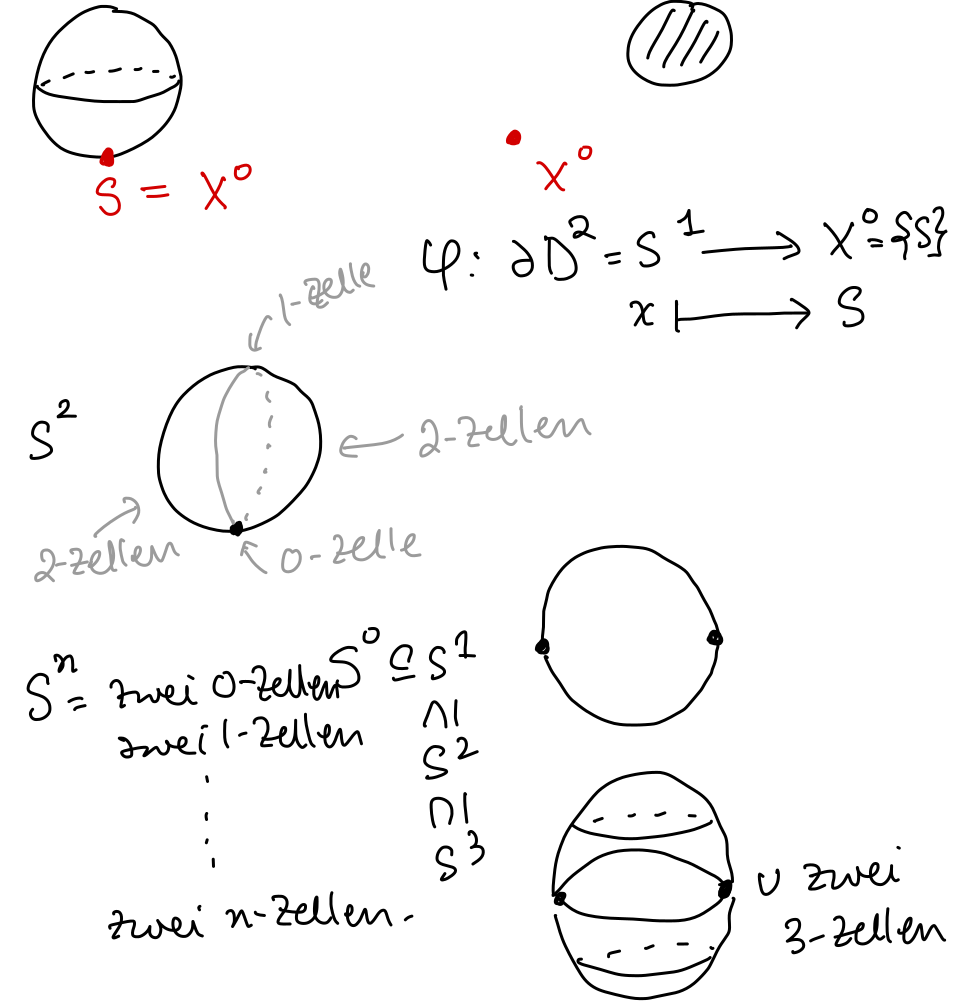 S = X⁰
X⁰
φ: ∂D² = S¹ ⟶ X⁰ = {S}
x ⟼ S
1-Zelle
S²
2-Zellen
2-Zellen
0-Zelle
Sⁿ = zwei 0-Zellen S⁰ ⊆ S¹
zwei 1-Zellen ∩|
S²
∩|
S³
zwei n-Zellen.
∪ zwei
3-Zellen